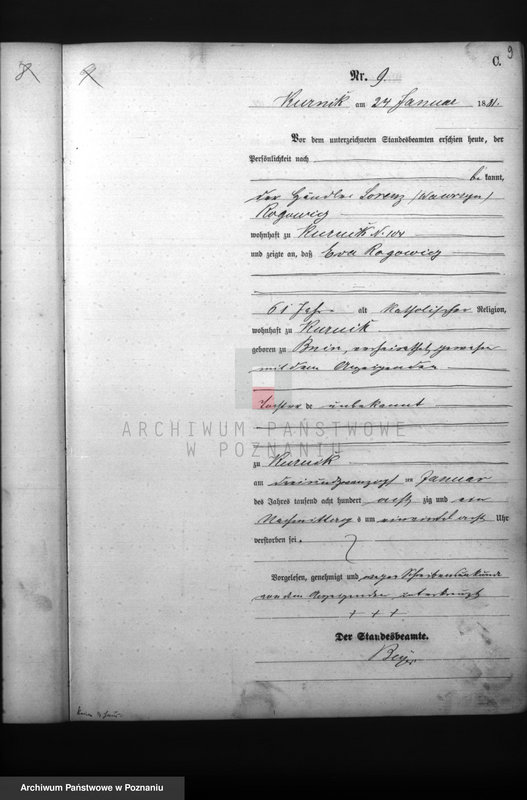 8
9
9
C.
Nr. 9
Kurnik am 24 Januar 1881.
Vor dem unterzeichneten Standesbeamten erschien heute, der
Persönlichkeit nach
be kannt,
der Händler Lorenz (Wawrzyn)
Rogowicz
wohnhaft zu Kurnik N. 104
und zeigte an, daß Eva Rogowicz
61 Jahr alt katholischer Religion,
wohnhaft zu Kurnik
geboren zu Bnin, verheirathet gewesen
mit dem Anzeigenden
Tochter de unbekannt
ARCHIWUM PAŃSTWOWE
W POZNANIU
zu Kurnik
am dreiundzwanzigsten Januar
des Jahres tausend acht hundert acht zig und ein
Nachmittags um acht Uhr
verstorben sei.
Vorgelesen, genehmigt und wegen Schreibensunkunde
von dem Anzeigenden unterkreuzt
+ + +
Der Standesbeamte.
Archiwum Państwowe w Poznaniu
Archiwum Państwowe w Poznaniu